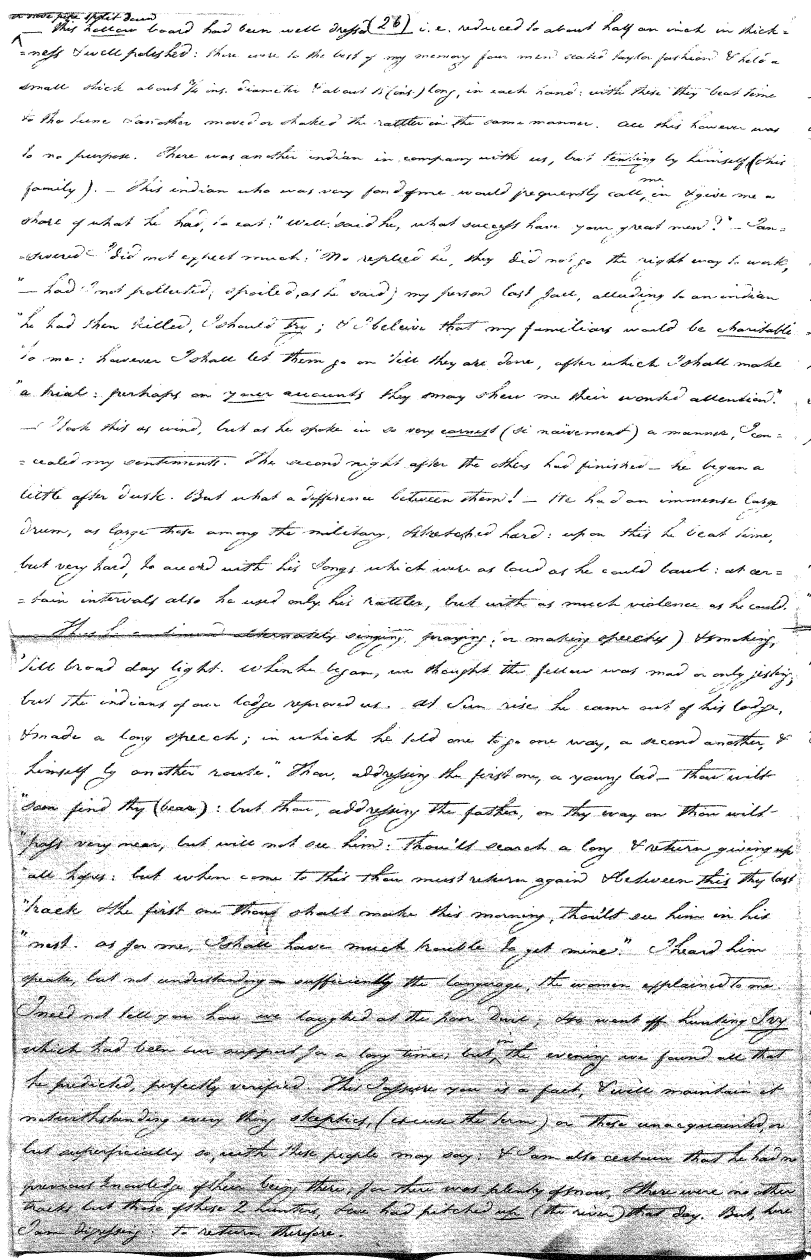 or rose pipe split down
(26)
— this hollow board had been well dressed i.e. reduced to about half an inch in thick=
=ness & well polished: there were to the best of my memory four men seated taylor fashion & held a
small stick about ¾ ins. diameter & about 15 (ins.) long, in each hand: with these they beat time
to the tune & another moved or shaked the rattler in the same manner. All this however was
to no purpose. There was another indian in company with us, but tenting by himself (& his
family). — This indian who was very fond of me would frequently call me in & give me a
share of what he had, to eat: "Well! said he, what success have your great men?" — I an=
=swered "I did not expect much:" "No replied he, they did not go the right way to work,
"— had I not polluted, (spoiled, as he said) my person last fall, alluding to an indian
"he had then killed, I should try; & I beleive that my familiars would be charitable
"to me: however I shall let them go on 'till they are done, after which I shall make
"a trial: perhaps on your accounts they may shew me their wonted attention."
— I took this as wind, but as he spoke in so very earnest (si naivement) a manner, I con=
=cealed my sentiments. The second night after the others had finished — he began a
little after dusk. But what a difference between them! — He had an immense large
drum, as large those among the military, stretched hard: upon this he beat time,
but very hard, to accord with his songs which were as loud as he could bawl: at cer=
=tain intervals also he used only his rattler, but with as much violence as he could.
This he continued alternately singing, praying, or making speeches) & smoking,
'till broad day light. When he began, we thought the fellow was mad or only jesting,
but the indians of our lodge reproved us. At Sun rise he came out of his lodge,
& made a long speech; in which he told one to go one way, a second another, &
himself by another route." Thou, addressing the first one, a young lad — thou wilt
"soon find thy (bear): but thou, addressing the father, on thy way on thou wilt
"pass very near, but will not see him: thou'lt search a long & return giving up
"all hopes: but when come to this thou must return again & between this thy last
"track & the first one thou shalt make this morning, thou'lt see him in his
"nest. as for me, I shall have much trouble to get mine." I heard him
speak, but not understanding sufficiently the language, the women explained to me.
I need not tell you how we laughed at the poor Devil; & so went off hunting Ivy
which had been our support for a long time; but in the evening we found all that
he predicted, perfectly verified. This I assure you is a fact, & will maintain it
notwithstanding every thing skeptics, (excuse the term) or those unacquainted, or
but superficially so, with these people may say: & I am also certain that he had no
previous knowledge of their being there; for there was plenty of snow, & there were no other
tracks but those of these 2 hunters, & we had pitched up (the river) that day. But, here
I am digressing: to return therefore.